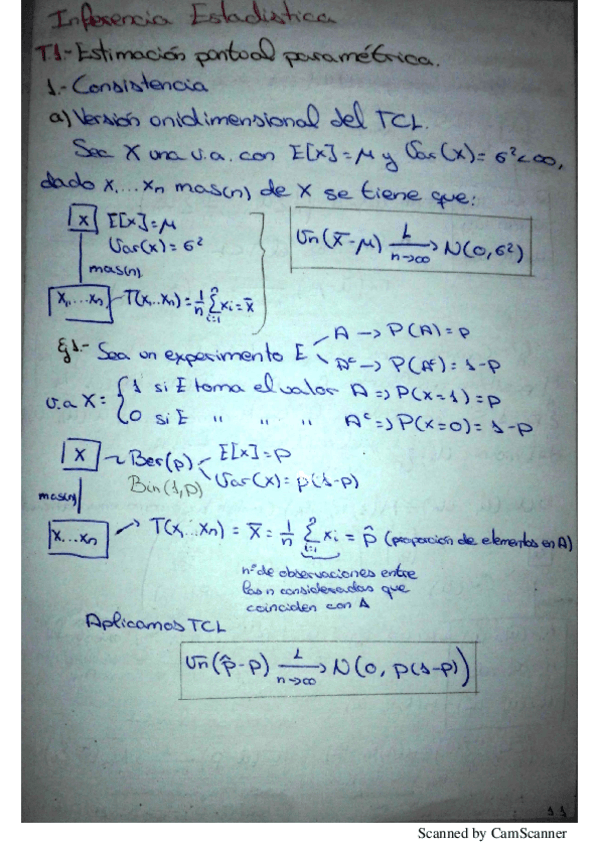 Inferencia Estadística
T.1.- Estimación puntual paramétrica.
1.- Consistencia
a) Versión unidimensional del TCL.
Sea X una v.a. con E[X]=μ y Var(X)=σ²<∞,
dado X1...Xn mas(n) de X se tiene que:
X E[X]=μ
Var(X)=σ²
mas(n)
X1...Xn → T(X1...Xn)=1/n ∑_{i=1}^{n} xi = X̄
√n(X̄-μ) →^L_{n→∞} N(0,σ²)
Ej1.- Sea un experimento E
A → P(A)=p
Aᶜ → P(Aᶜ)=1-p
v.a X = { 1 si E toma el valor A => P(X=1)=p
0 si E " " " Aᶜ => P(X=0)=1-p
X ~ Ber(p) E[X]=p
Bin(1,p) Var(X)=p(1-p)
mas(n)
X1...Xn → T(X1...Xn) = X̄ = 1/n ∑_{i=1}^{n} xi = p̂ (proporción de elementos en A)
nº de observaciones entre
las n consideradas que
coinciden con A
Aplicamos TCL
√n(p̂-p) →^L_{n→∞} N(0, p(1-p))
1.1
Scanned by CamScanner